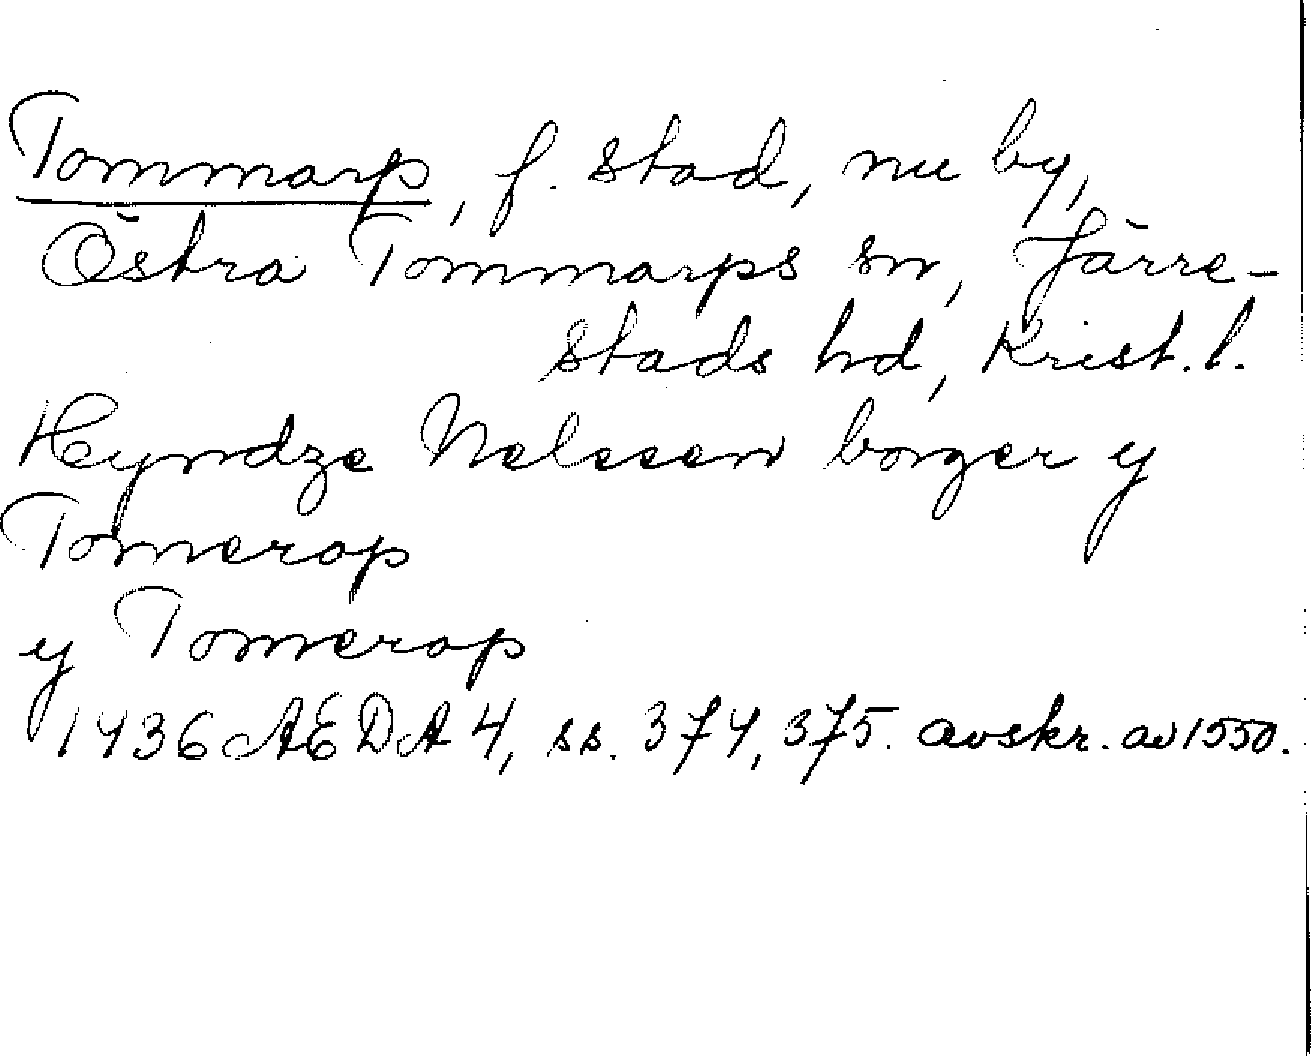 Tommarp, f. stad, nu by,
Östra Tommarps sn, Järre-
stads hd, Krist. l.
Heyndze Nelssen borger y
Tomerop
y Tomerop
1436 AEDA 4, ss. 374, 375. avskr. av 1550.